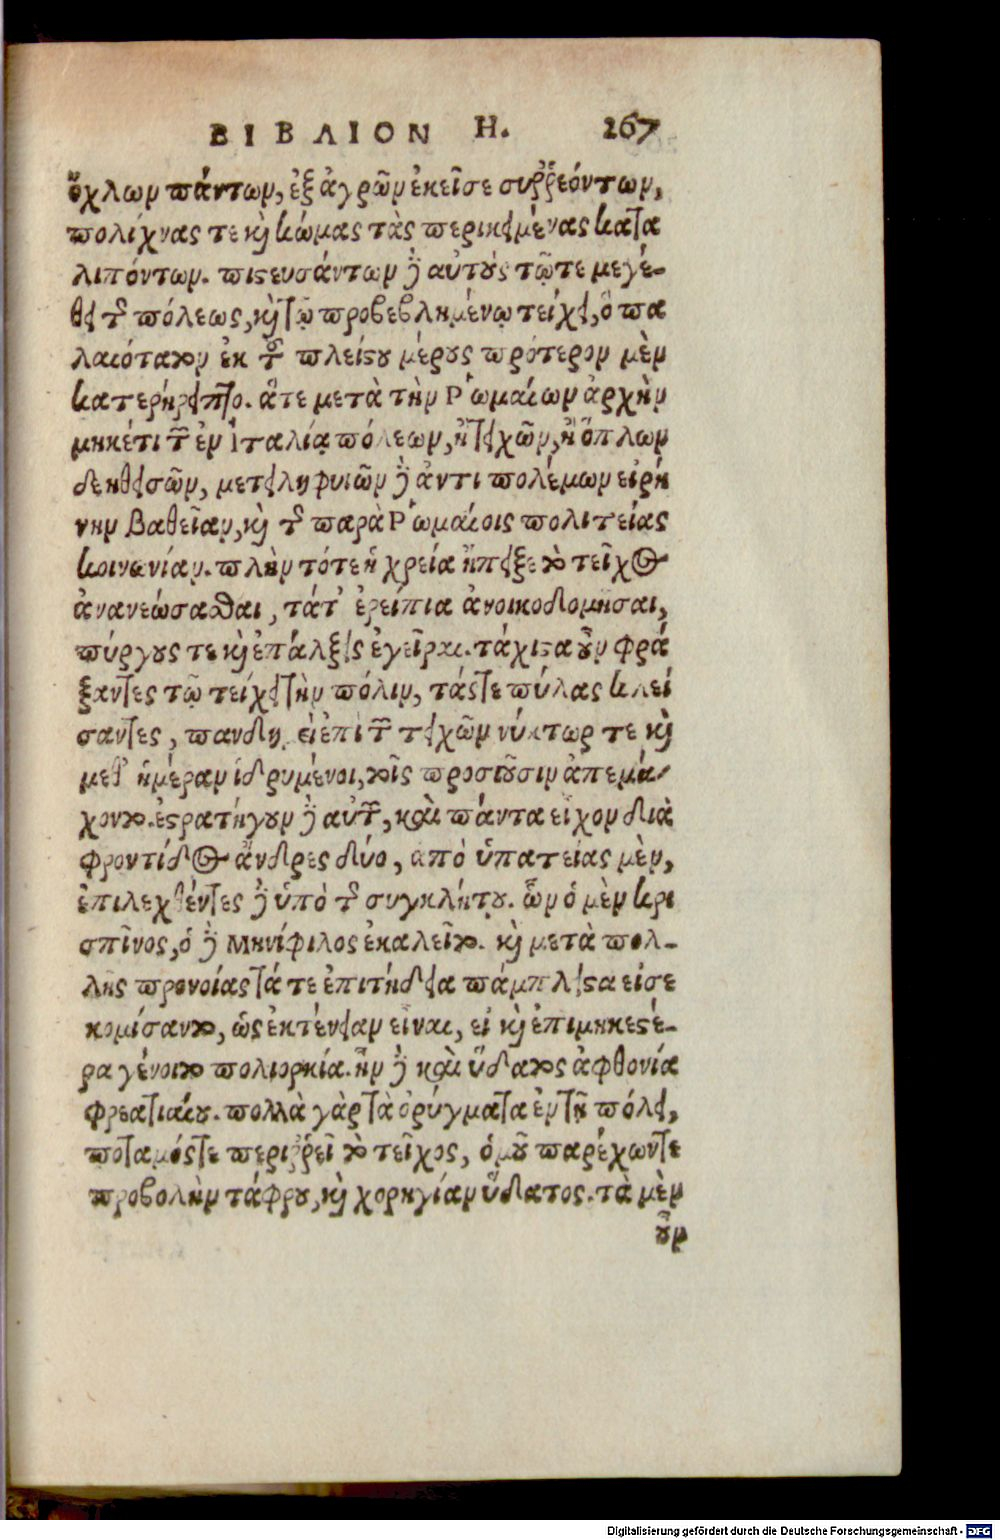 ΒΙΒΛΙΟΝ Η. 267
ὄχλων πάντων, ἐξ ἀγρῶν ἐκεῖσε συῤῥεόντων,
πολίχνας τε καὶ κώμας τὰς περικειμένας κατα
λιπόντων. πιστευσάντων δὲ αὐτοὺς τῷ τε μεγέ-
θει τῆς πόλεως, καὶ τῷ προβεβλημένῳ τείχει, ὃ πα
λαιότατον ἐκ τοῦ πλείστου μέρους πρότερον μὲν
κατερήρειπτο. ἅτε μετὰ τὴν Ῥωμαίων ἀρχὴν
μηκέτι τῶν ἐν Ἰταλίᾳ πόλεων, ἢ τειχῶν, ἢ ὅπλων
δεηθεισῶν, μετειληφυιῶν δὲ ἀντὶ πολέμων εἰρή
νην βαθεῖαν, καὶ τῆς παρὰ Ῥωμαίοις πολιτείας
κοινωνίαν. πλὴν τότε ἡ χρεία ἤπειξε τὸ τεῖχος
ἀνανεώσασθαι, τά τ' ἐρείπια ἀνοικοδομῆσαι,
πύργους τε καὶ ἐπάλξεις ἐγεῖραι. τάχιστα οὖν φρά
ξαντες τῷ τείχει τὴν πόλιν, τάς τε πύλας κλεί
σαντες, πανδημεὶ ἐπὶ τῶν τειχῶν νύκτωρ τε καὶ
μεθ' ἡμέραν ἱδρυμένοι, τοῖς προσιοῦσιν ἀπεμά
χοντο. ἐστρατήγουν δὲ αὐτῶν, καὶ πάντα εἶχον διὰ
φροντίδος ἄνδρες δύο, ἀπὸ ὑπατείας μὲν,
ἐπιλεχθέντες δὲ ὑπὸ τῆς συγκλήτου. ὧν ὁ μὲν Κρι
σπῖνος, ὁ δὲ Μηνίφιλος ἐκαλεῖτο. καὶ μετὰ πολ-
λῆς προνοίας τά τε ἐπιτήδεια πάμπλειστα εἰσε
κομίσαντο, ὡς ἐκτένειαν εἶναι, εἰ καὶ ἐπιμηκεστέ-
ρα γένοιτο πολιορκία. ἦν δὲ καὶ ὕδατος ἀφθονία
φρεατιαίου. πολλὰ γὰρ τὰ ὀρύγματα ἐν τῇ πόλει,
ποταμός τε περιῤῥεῖ τὸ τεῖχος, ὁμοῦ παρέχων τε
προβολὴν τάφρου, καὶ χορηγίαν ὕδατος. τὰ μὲν
οὖν
Digitalisierung gefördert durch die Deutsche Forschungsgemeinschaft - DFG